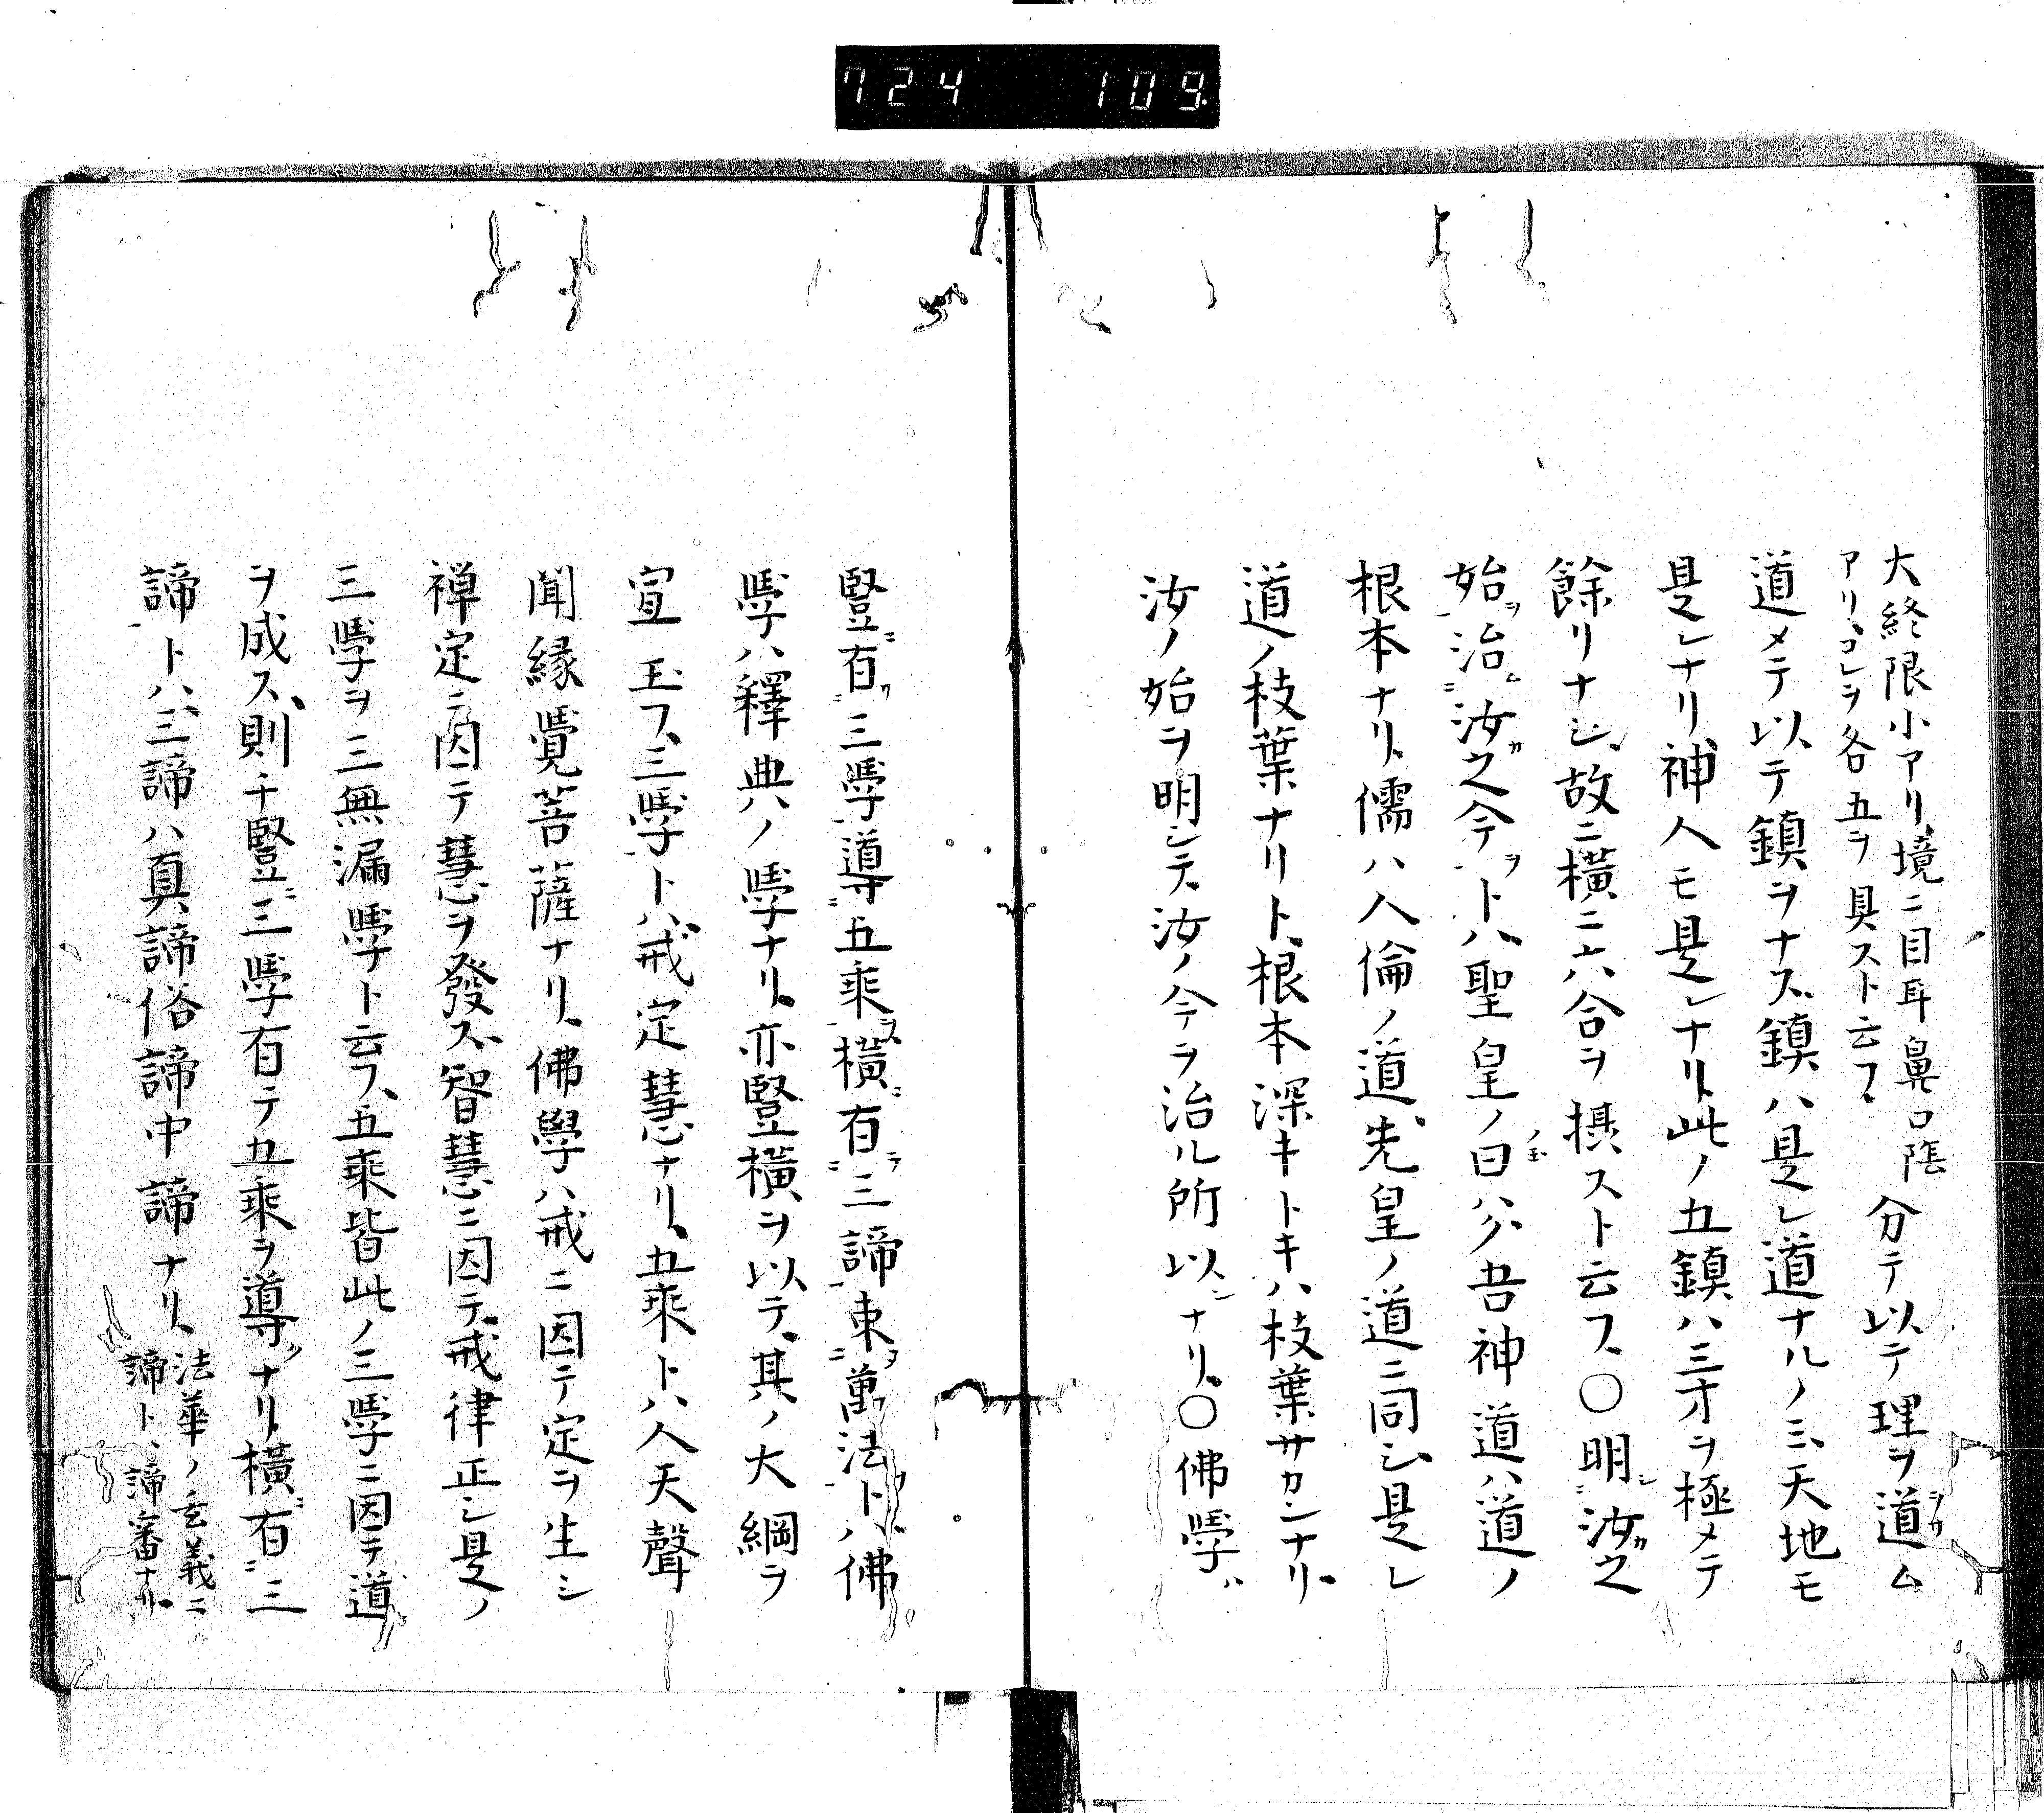 724 109
大終限小アリ、境ニ目耳鼻口陰
アリ、コレヲ各五ヲ具スト云フ、
分テ以テ理ヲ道ム
道メテ以テ鎮ヲナス、鎮ハ是レ道ナルノミ、天地モ
是レナリ、神人モ是レナリ、此ノ五鎮ハ三才ヲ極メテ
餘リナシ、故ニ横ニ六合ヲ摂スト云フ、○明シ汝カ之
始ヲ治ム汝カ之今ヲトハ、聖皇ノ曰ハク、吾神道ハ道ノ
根本ナリ、儒ハ人倫ノ道、先皇ノ道ニ同シ、是レ
道ノ枝葉ナリト、根本深キトキハ枝葉サカンナリ、
汝ノ始ヲ明シテ、汝ノ今ヲ治ル所以ナリ、○佛學ハ
豎ニ有ク三學導ニ五乘ヲ横ニ有ラ三諦束ヲ萬法トハ、佛
學ハ釋典ノ學ナリ、亦豎横ヲ以テ、其ノ大綱ヲ
宣玉フ、三學トハ、戒定慧ナリ、五乘トハ人天聲
聞縁覺菩薩ナリ、佛學ハ戒ニ因テ定ヲ生シ
禅定ニ因テ慧ヲ發ス、智慧ニ因テ、戒律正シ、是ノ
三學ヲ三無漏學ト云フ、五乘皆此ノ三學ニ因テ道
ヲ成ス、則チ豎ニ三學有テ五乘ヲ導クナリ、横ニ有三
諦トハ、三諦ハ真諦俗諦中諦ナリ、
法華ノ玄義ニ
諦ト、諦審ナリ